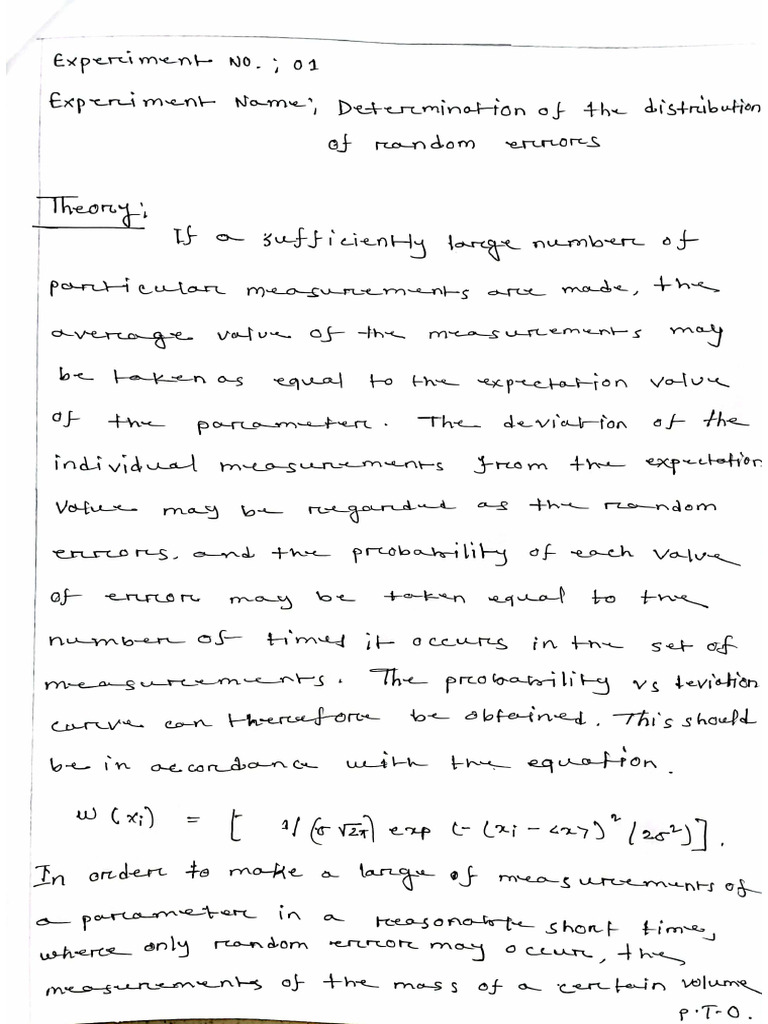 Experiment No. ; 01
Experiment Name; Determination of the distribution
of random errors
Theory;
If a sufficiently large number of
particular measurements are made, the
average value of the measurements may
be taken as equal to the expectation value
of the parameter. The deviation of the
individual measurements from the expectation
value may be regarded as the random
errors, and the probability of each value
of error may be taken equal to the
number of times it occurs in the set of
measurements. The probability vs deviation
curve can therefore be obtained. This should
be in accordance with the equation.
w (xi) = [ 1/(σ √2π) exp (- (xi - <x>)² / (2σ²)].
In order to make a large of measurements of
a parameter in a reasonable short time,
where only random error may occur, the
measurements of the mass of a certain volume
P.T.O.